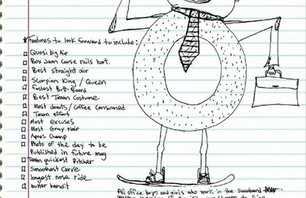 Features to look forward to include:
Quasi big Air
Best straight air
Scorpion King / Queen
Fastest Butt-Board
Best Team Costume
Most donuts / Coffee Consumed
Team effort
Most excuses
Most Gray hair
Apres Champ
Photo of the day to be
Published in future mag
Team quickest Pitcher
Smoothest Carve
longest nose ride
butter bandit
All office boys and girls who work in the snowboard